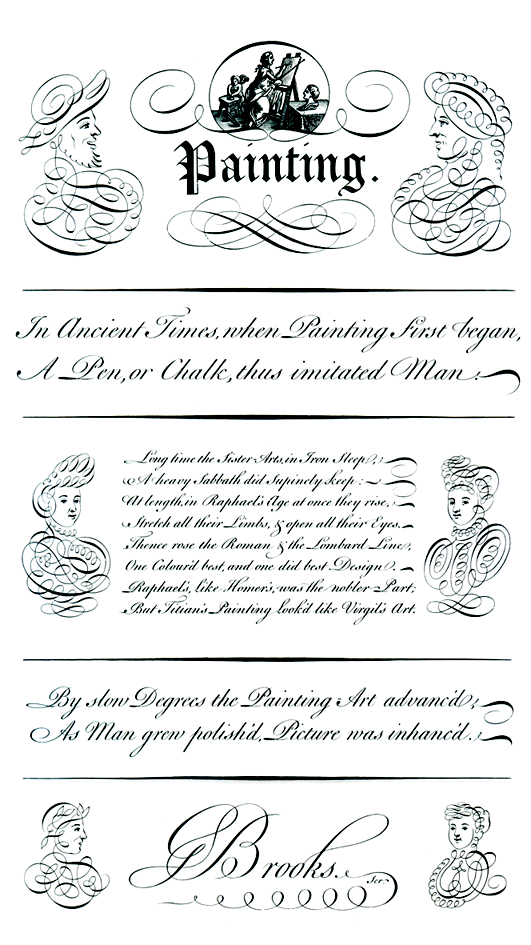 Painting.
In Ancient Times, when Painting First began,
A Pen, or Chalk, thus imitated Man;
Long time the Sister-Arts, in Iron Sleep,
A heavy Sabbath did Supinely keep;
At length, in Raphael's Age at once they rise,
Stretch all their Limbs, & open all their Eyes.
Thence rose the Roman & the Lombard Line,
One Colour'd best, and one did best Design.
Raphael's, like Homer's, was the nobler Part;
But Titian's Painting look'd like Virgil's Art.
By slow Degrees the Painting Art advanc'd;
As Man grew polish'd, Picture was inhanc'd.
Brooks. Scr.